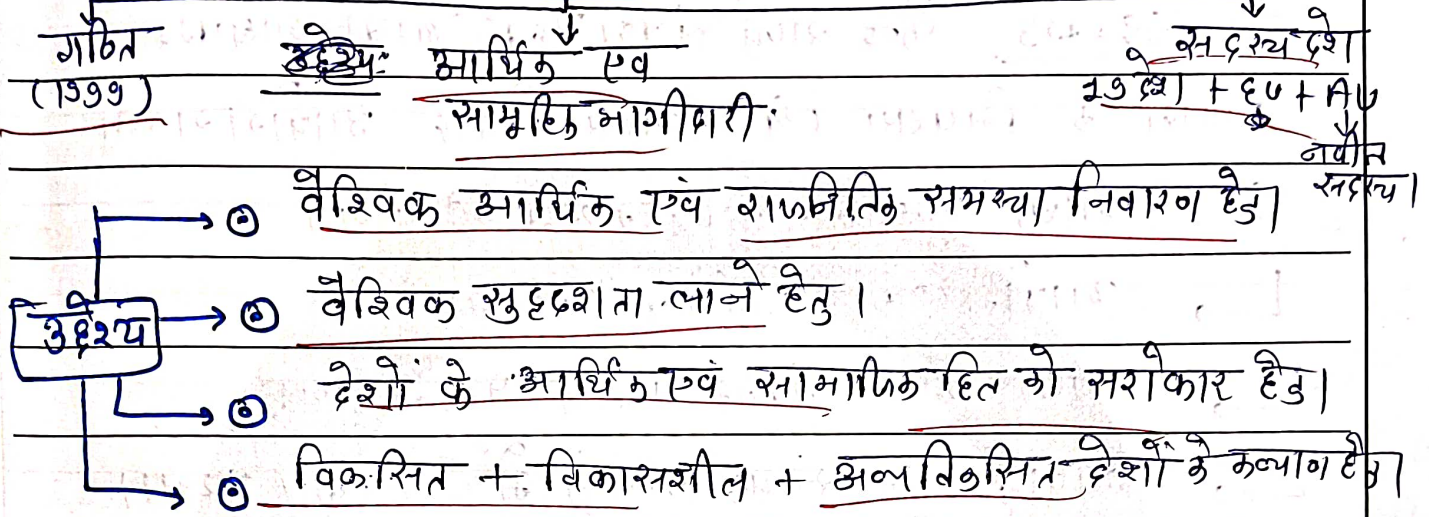 गठित
(1999)
आर्थिक एव
सामूहिक भागीदारी।
सदस्य देश।
19 देश। + EU + AU
नवीन
सदस्य।
वैश्विक आर्थिक एवं राजनितिक समस्या निवारण हेतु।
उद्देश्य
वैश्विक सुदृदशता लाने हेतु।
देशों के आर्थिक एवं सामाजिक हित को सरोकार हेतु।
विकसित + विकासशील + अल्पविकसित देशों के कल्याण हेतु।